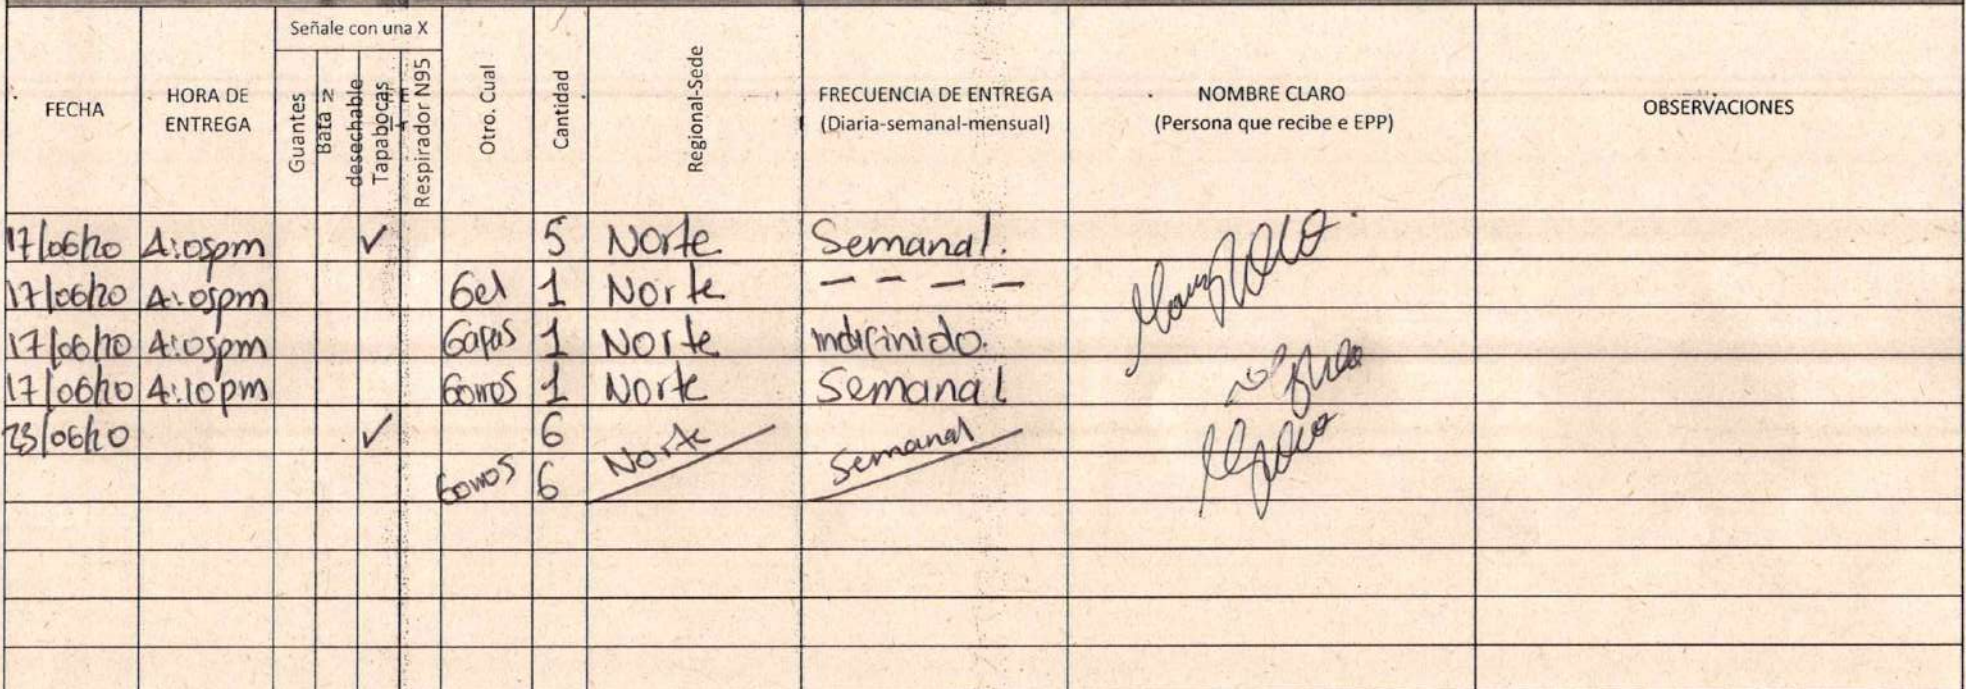 Señale con una X
FECHA HORA DE ENTREGA Guantes Bata desechable Tapabocas Respirador N95 Otro. Cual Cantidad Regional-Sede FRECUENCIA DE ENTREGA (Diaria-semanal-mensual) NOMBRE CLARO (Persona que recibe e EPP) OBSERVACIONES
17/06/20 4:05pm ✓ 5 Norte Semanal.
17/06/20 4:05pm Gel 1 Norte - - - -
17/06/20 4:05pm Gafas 1 Norte indifinido.
17/06/20 4:10pm Gorros 1 Norte Semanal
23/06/20 ✓ 6 Norte Semanal
Gorros 6